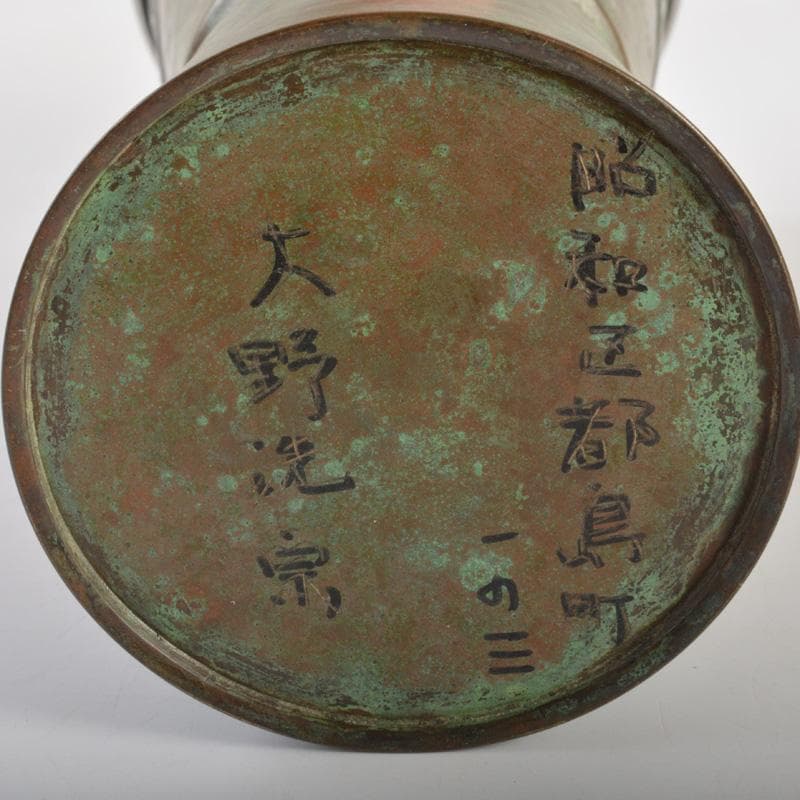 昭和区都島町
一の三
大野洗宗